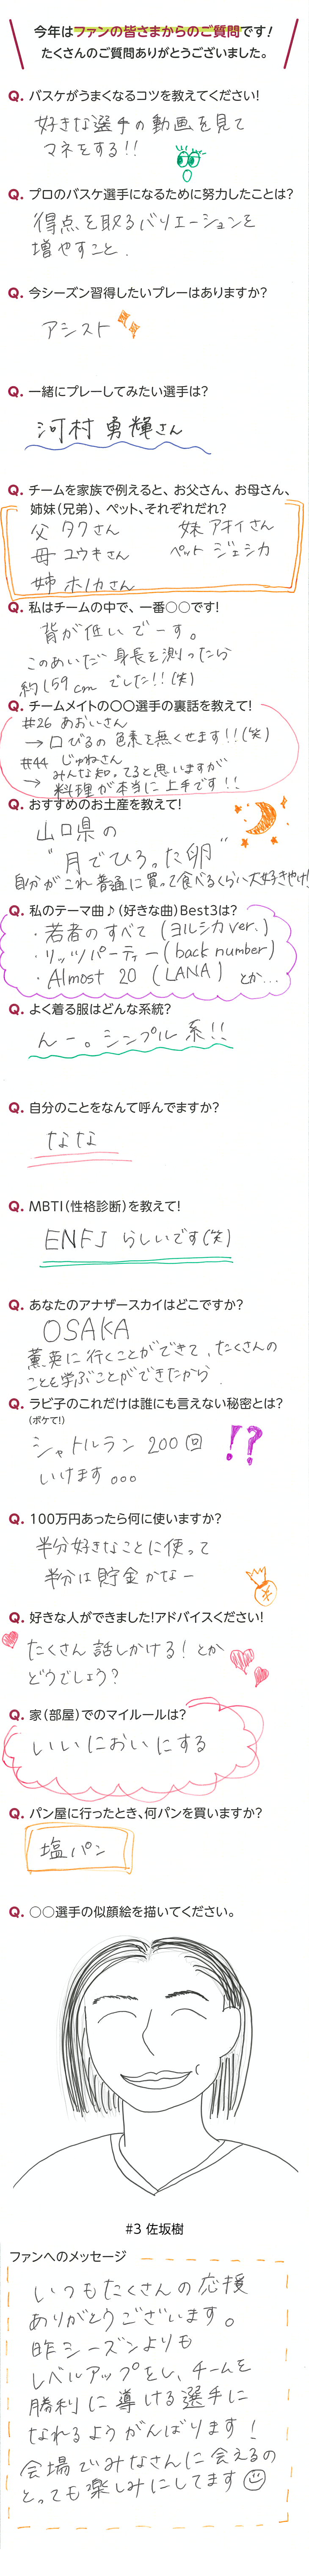 今年はファンの皆さまからのご質問です!
たくさんのご質問ありがとうございました。
Q. バスケがうまくなるコツを教えてください!
好きな選手の動画を見て
マネをする!!
Q. プロのバスケ選手になるために努力したことは?
得点を取るバリエーションを
増やすこと.
Q. 今シーズン習得したいプレーはありますか?
アシスト
Q. 一緒にプレーしてみたい選手は?
河村 勇輝さん
Q. チームを家族で例えると、お父さん、お母さん、
姉妹(兄弟)、ペット、それぞれだれ?
父 タクさん 妹 アオイさん
母 ユウキさん ペット ジェシカ
姉 ホノカさん
Q. 私はチームの中で、一番○○です!
背が低いでーす。
このあいだ 身長を測ったら
約159cm でした!!(笑)
Q. チームメイトの○○選手の裏話を教えて!
#26 あおいさん
→口びるの色素を無くせます!!(笑)
#44 じゅねさん
みんな知ってると思いますが
→ 料理が本当に上手です!!
Q. おすすめのお土産を教えて!
山口県の
"月でひろった卵"
自分がこれ普通に買って食べるくらい大好きやけ!
Q. 私のテーマ曲♪(好きな曲)Best3は?
・若者のすべて(ヨルシカ ver.)
・リッツパーティー(back number)
・Almost 20 (LANA) とか...
Q. よく着る服はどんな系統?
んー。シンプル系!!
Q. 自分のことをなんて呼んでますか?
なな
Q. MBTI(性格診断)を教えて!
ENFJ らしいです(笑)
Q. あなたのアナザースカイはどこですか?
OSAKA
薫英に行くことができて、たくさんの
ことを学ぶことができたから.
Q. ラビ子のこれだけは誰にも言えない秘密とは?
(ボケて!)
シャトルラン 200回
いけます。。。
!?
Q. 100万円あったら何に使いますか?
半分好きなことに使って
半分は貯金かなー
Q. 好きな人ができました!アドバイスください!
たくさん話しかける!とか
どうでしょう?
Q. 家(部屋)でのマイルールは?
いいにおいにする
Q. パン屋に行ったとき、何パンを買いますか?
塩パン
Q. ○○選手の似顔絵を描いてください。
#3 佐坂樹
ファンへのメッセージ
いつもたくさんの応援
ありがとうございます。
昨シーズンよりも
レベルアップをし、チームを
勝利に導ける選手に
なれるようがんばります!
会場でみなさんに会えるの
とっても楽しみにしてます